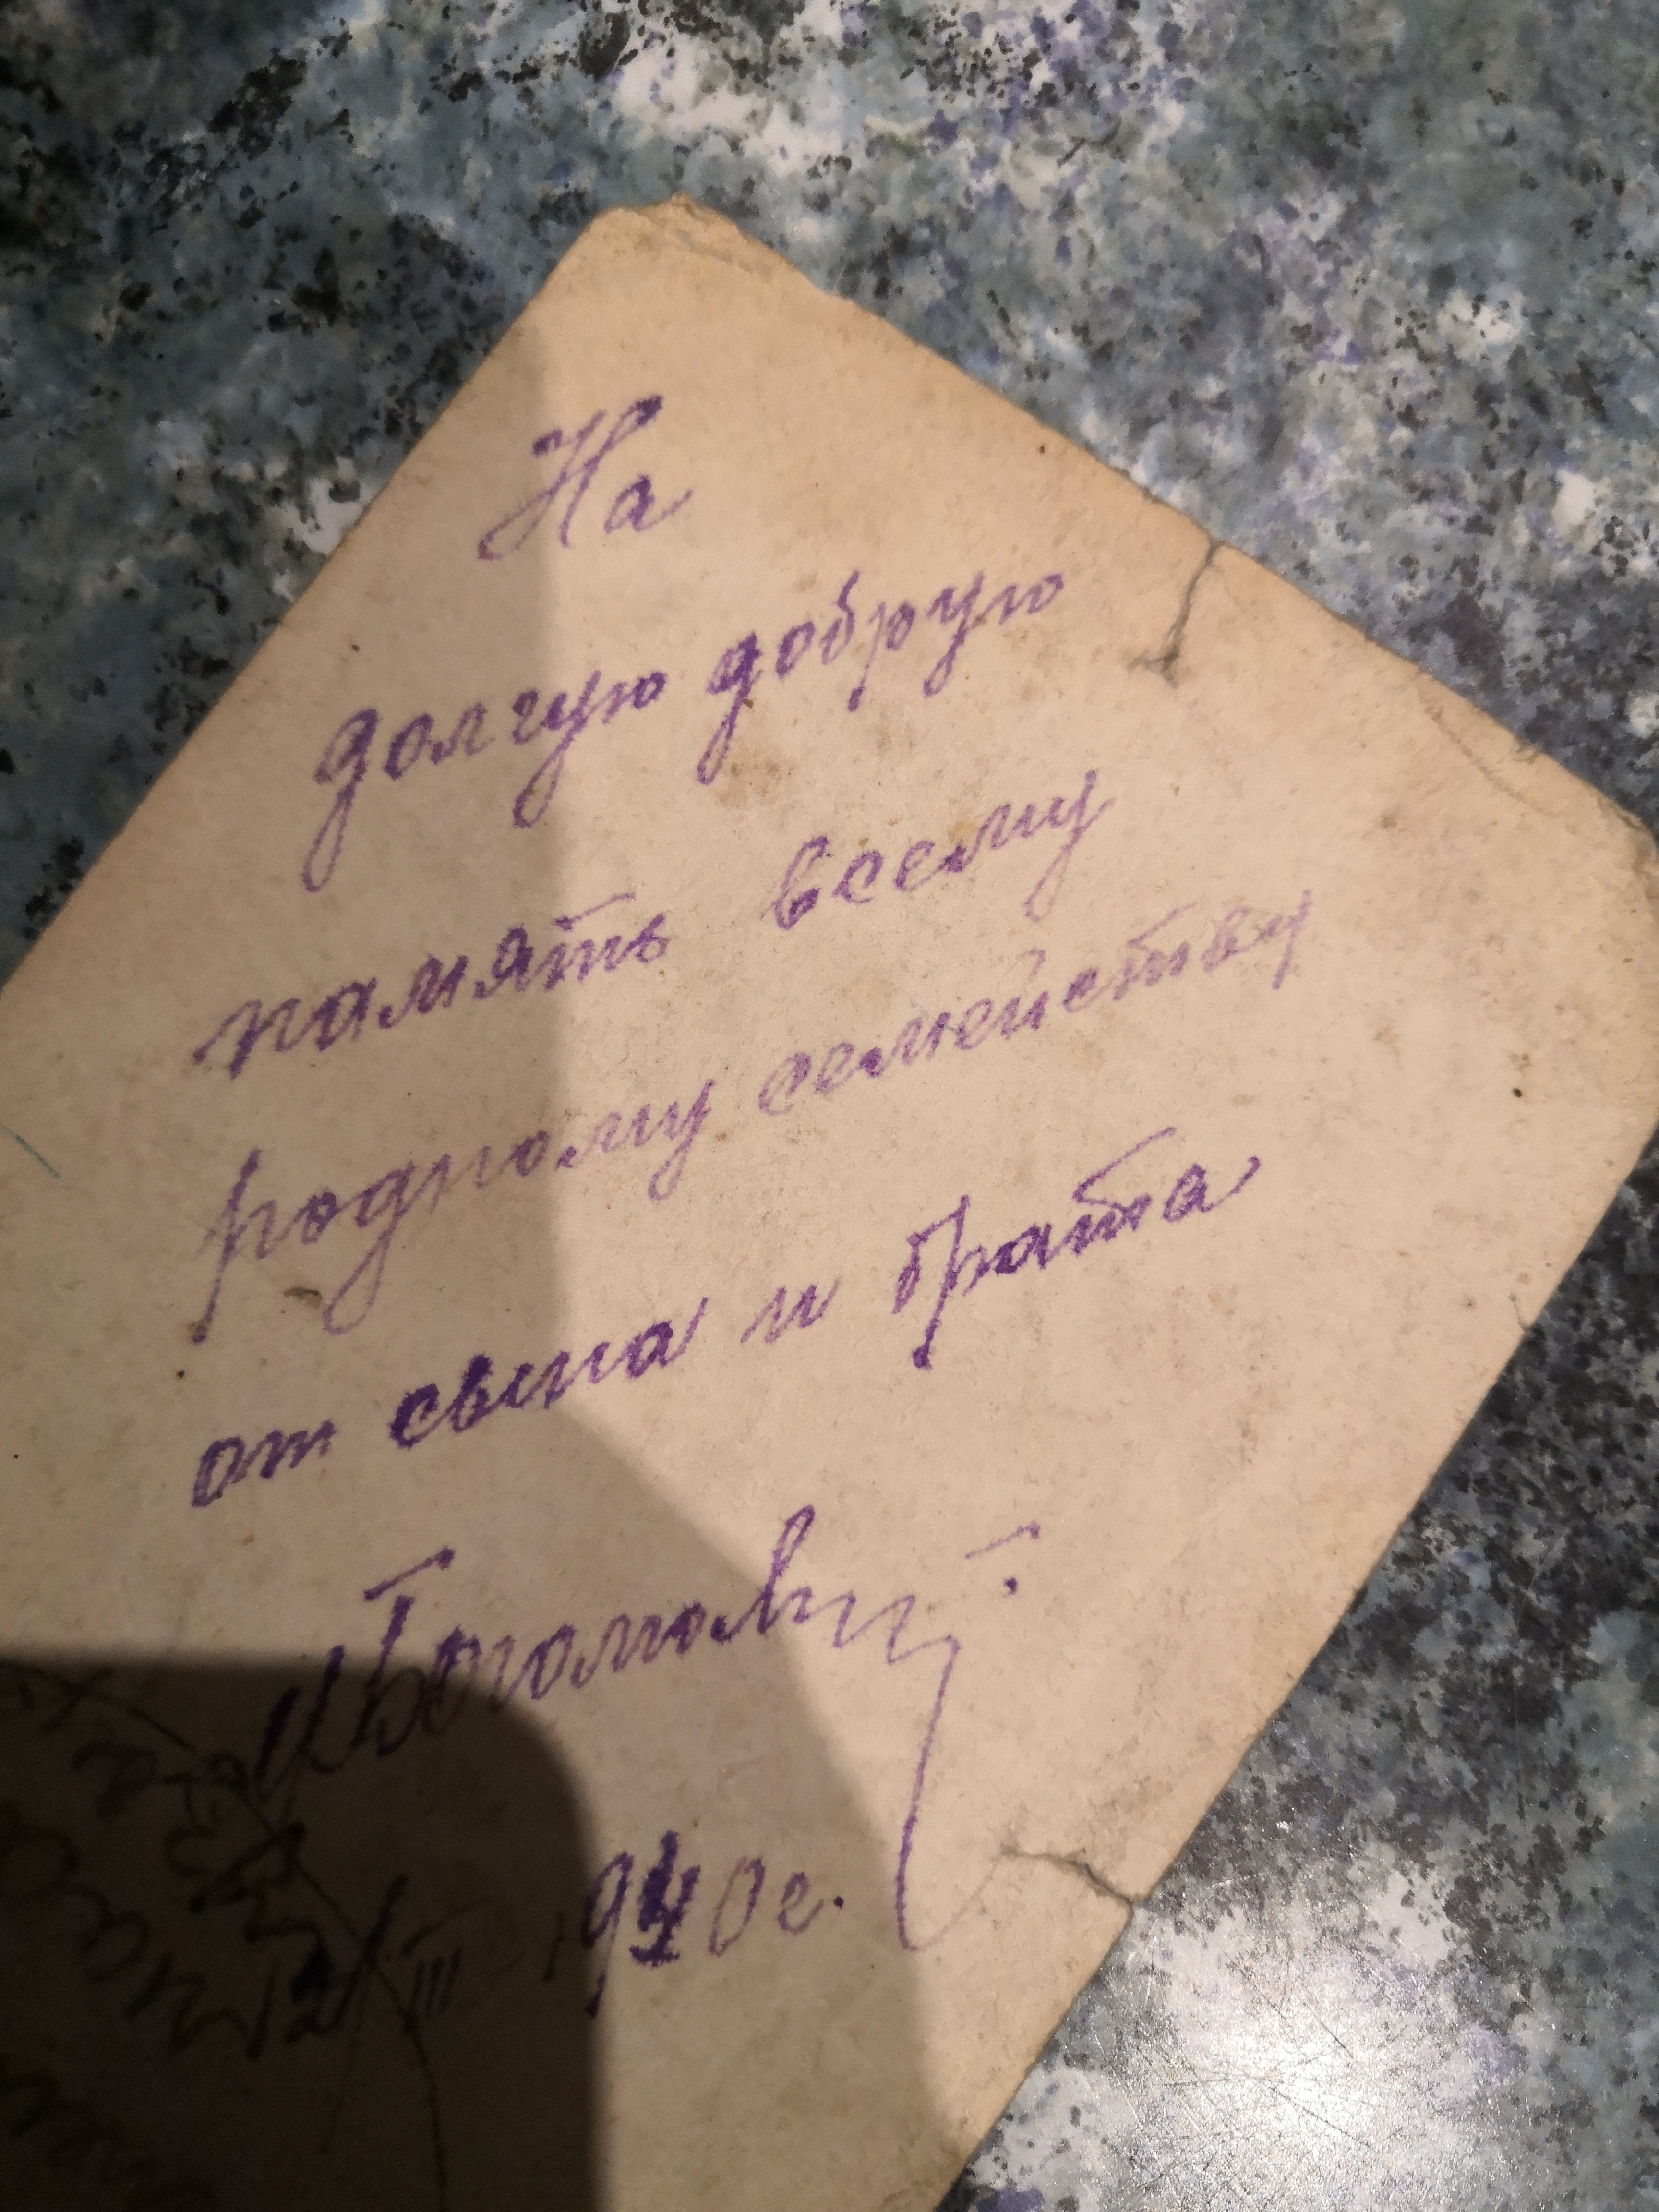 На
долгую добрую
память всему
родному семейству
от сына и брата
III 1940 г.